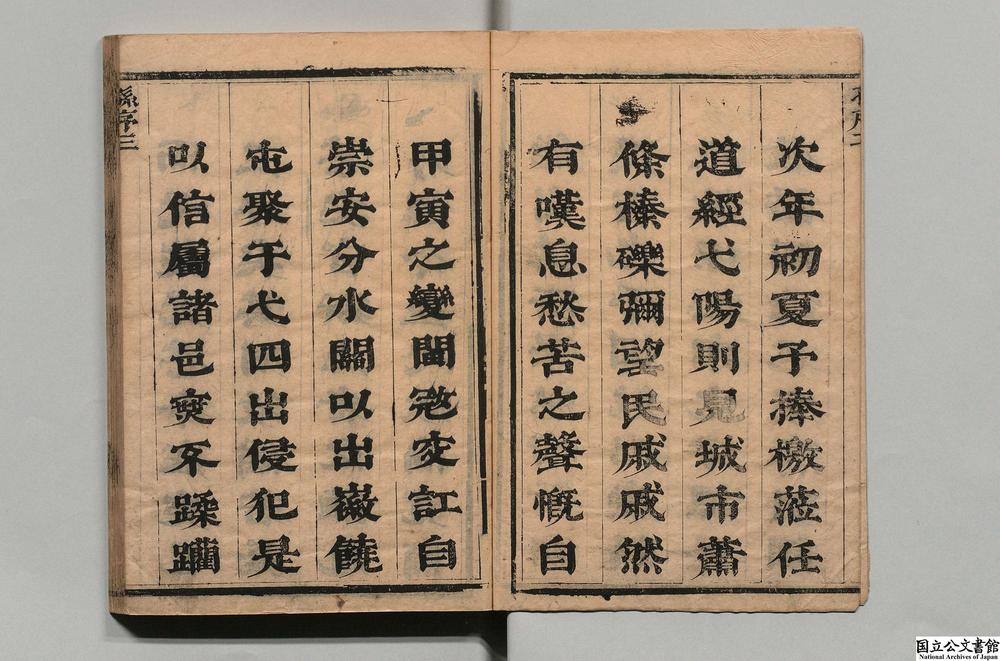 孫序二
次年初夏予捧檄蒞任
道經弋陽則見城市蕭
條榛礫彌望民戚戚然
有嘆息愁苦之聲慨自
甲寅之變閩宼突訌自
崇安分水關以出徽饒
屯聚于弋四出侵犯是
以信屬諸邑突豕蹂躪
孫序三
国立公文書館
National Archives of Japan